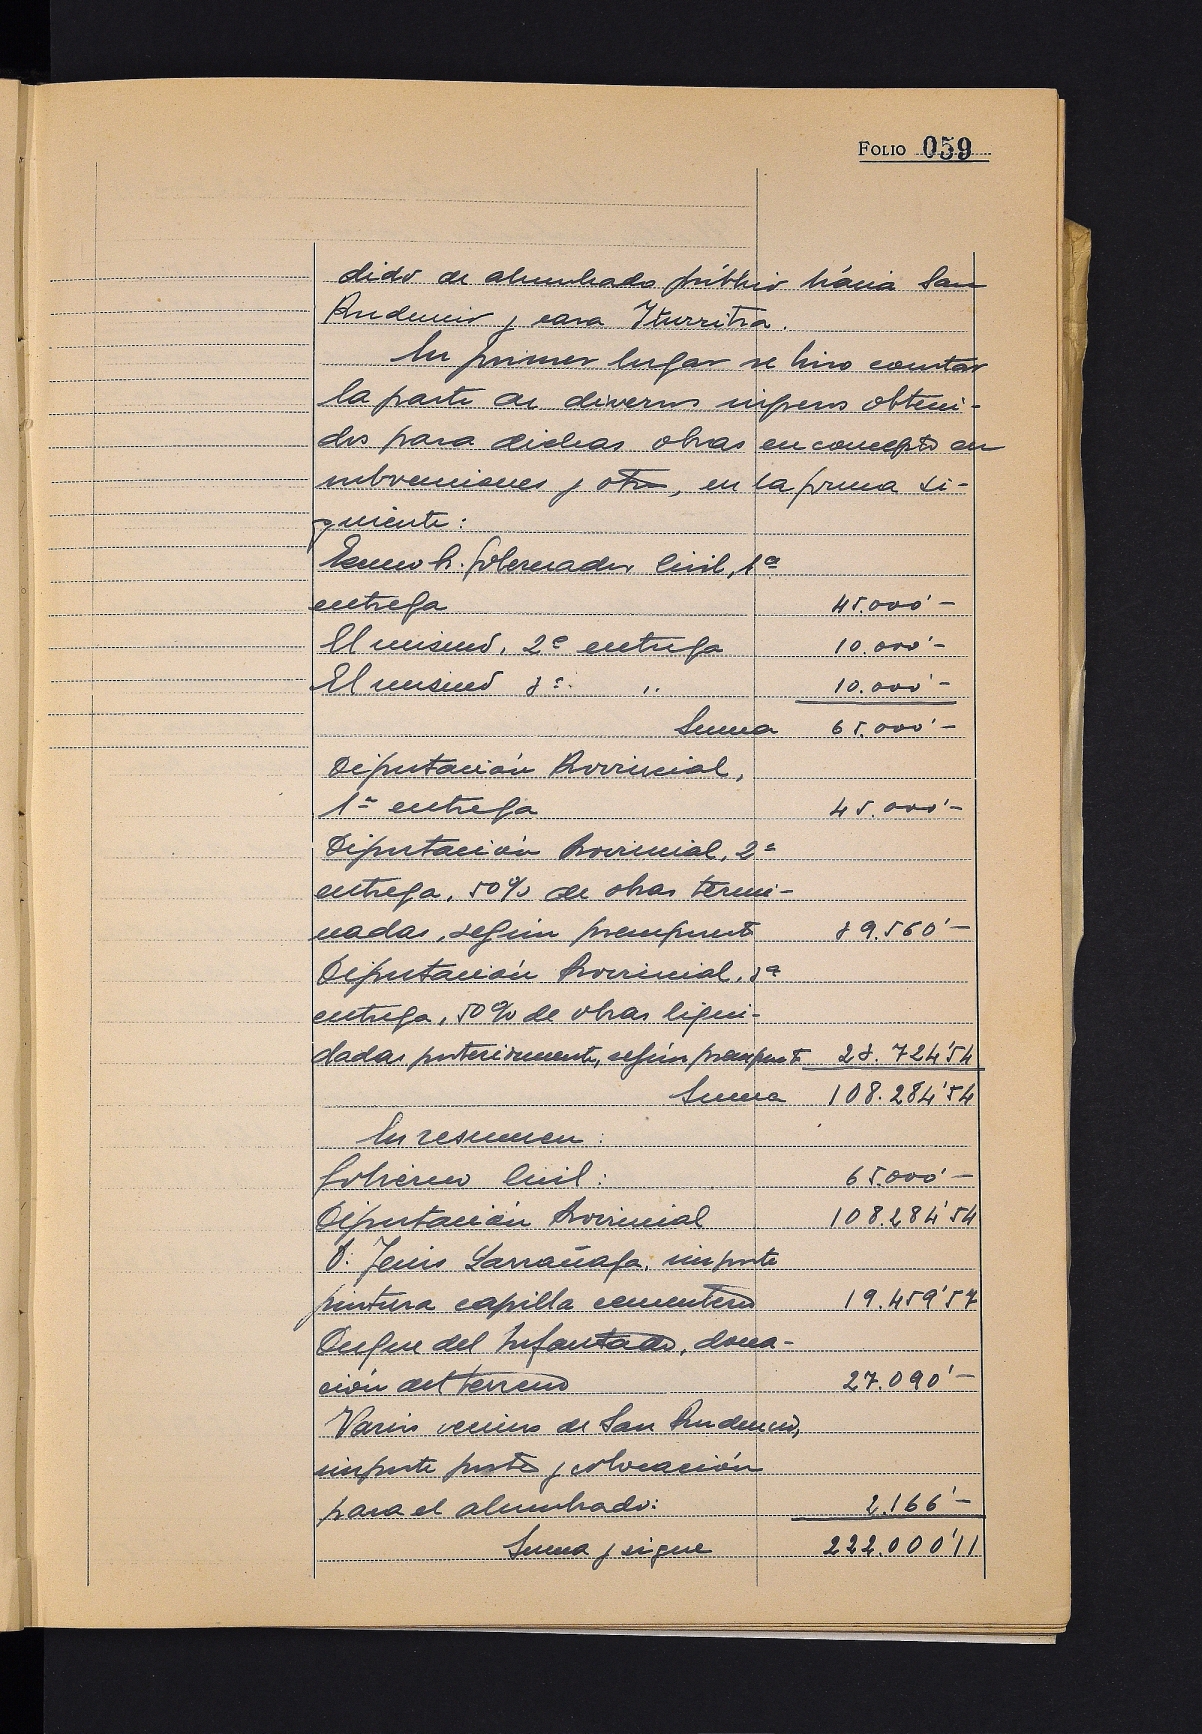 FOLIO 059
dido de alumbrado público hácia San
Prudencio y casa Iturritza.
En primer lugar se hizo constar
la parte de diversos ingresos obteni-
dos para dichas obras en concepto de
subvenciones y otros, en la forma si-
guiente:
Excmo Sr. Gobernador Civil, 1ª
entrega 45.000'-
El mismo, 2ª entrega 10.000'-
El mismo 3ª " 10.000'-
Suma 65.000'-
Diputación Provincial,
1ª entrega 45.000'-
Diputación Provincial, 2ª
entrega, 50% de obras termi-
nadas, según presupuesto 39.560'-
Diputación Provincial, 3ª
entrega, 50% de obras liqui-
dadas posteriormente, según presupuesto 23.724'54
Suma 108.284'54
En resumen:
Gobierno Civil: 65.000'-
Diputación Provincial 108.284'54
D. Jesús Larrañaga, importe
pintura capilla cementerio 19.459'57
Duque del Infantado, dona-
ción del terreno 27.090'-
Varios vecinos de San Prudencio,
importe postes y colocación
para el alumbrado: 2.166'-
Suma y sigue 222.000'11